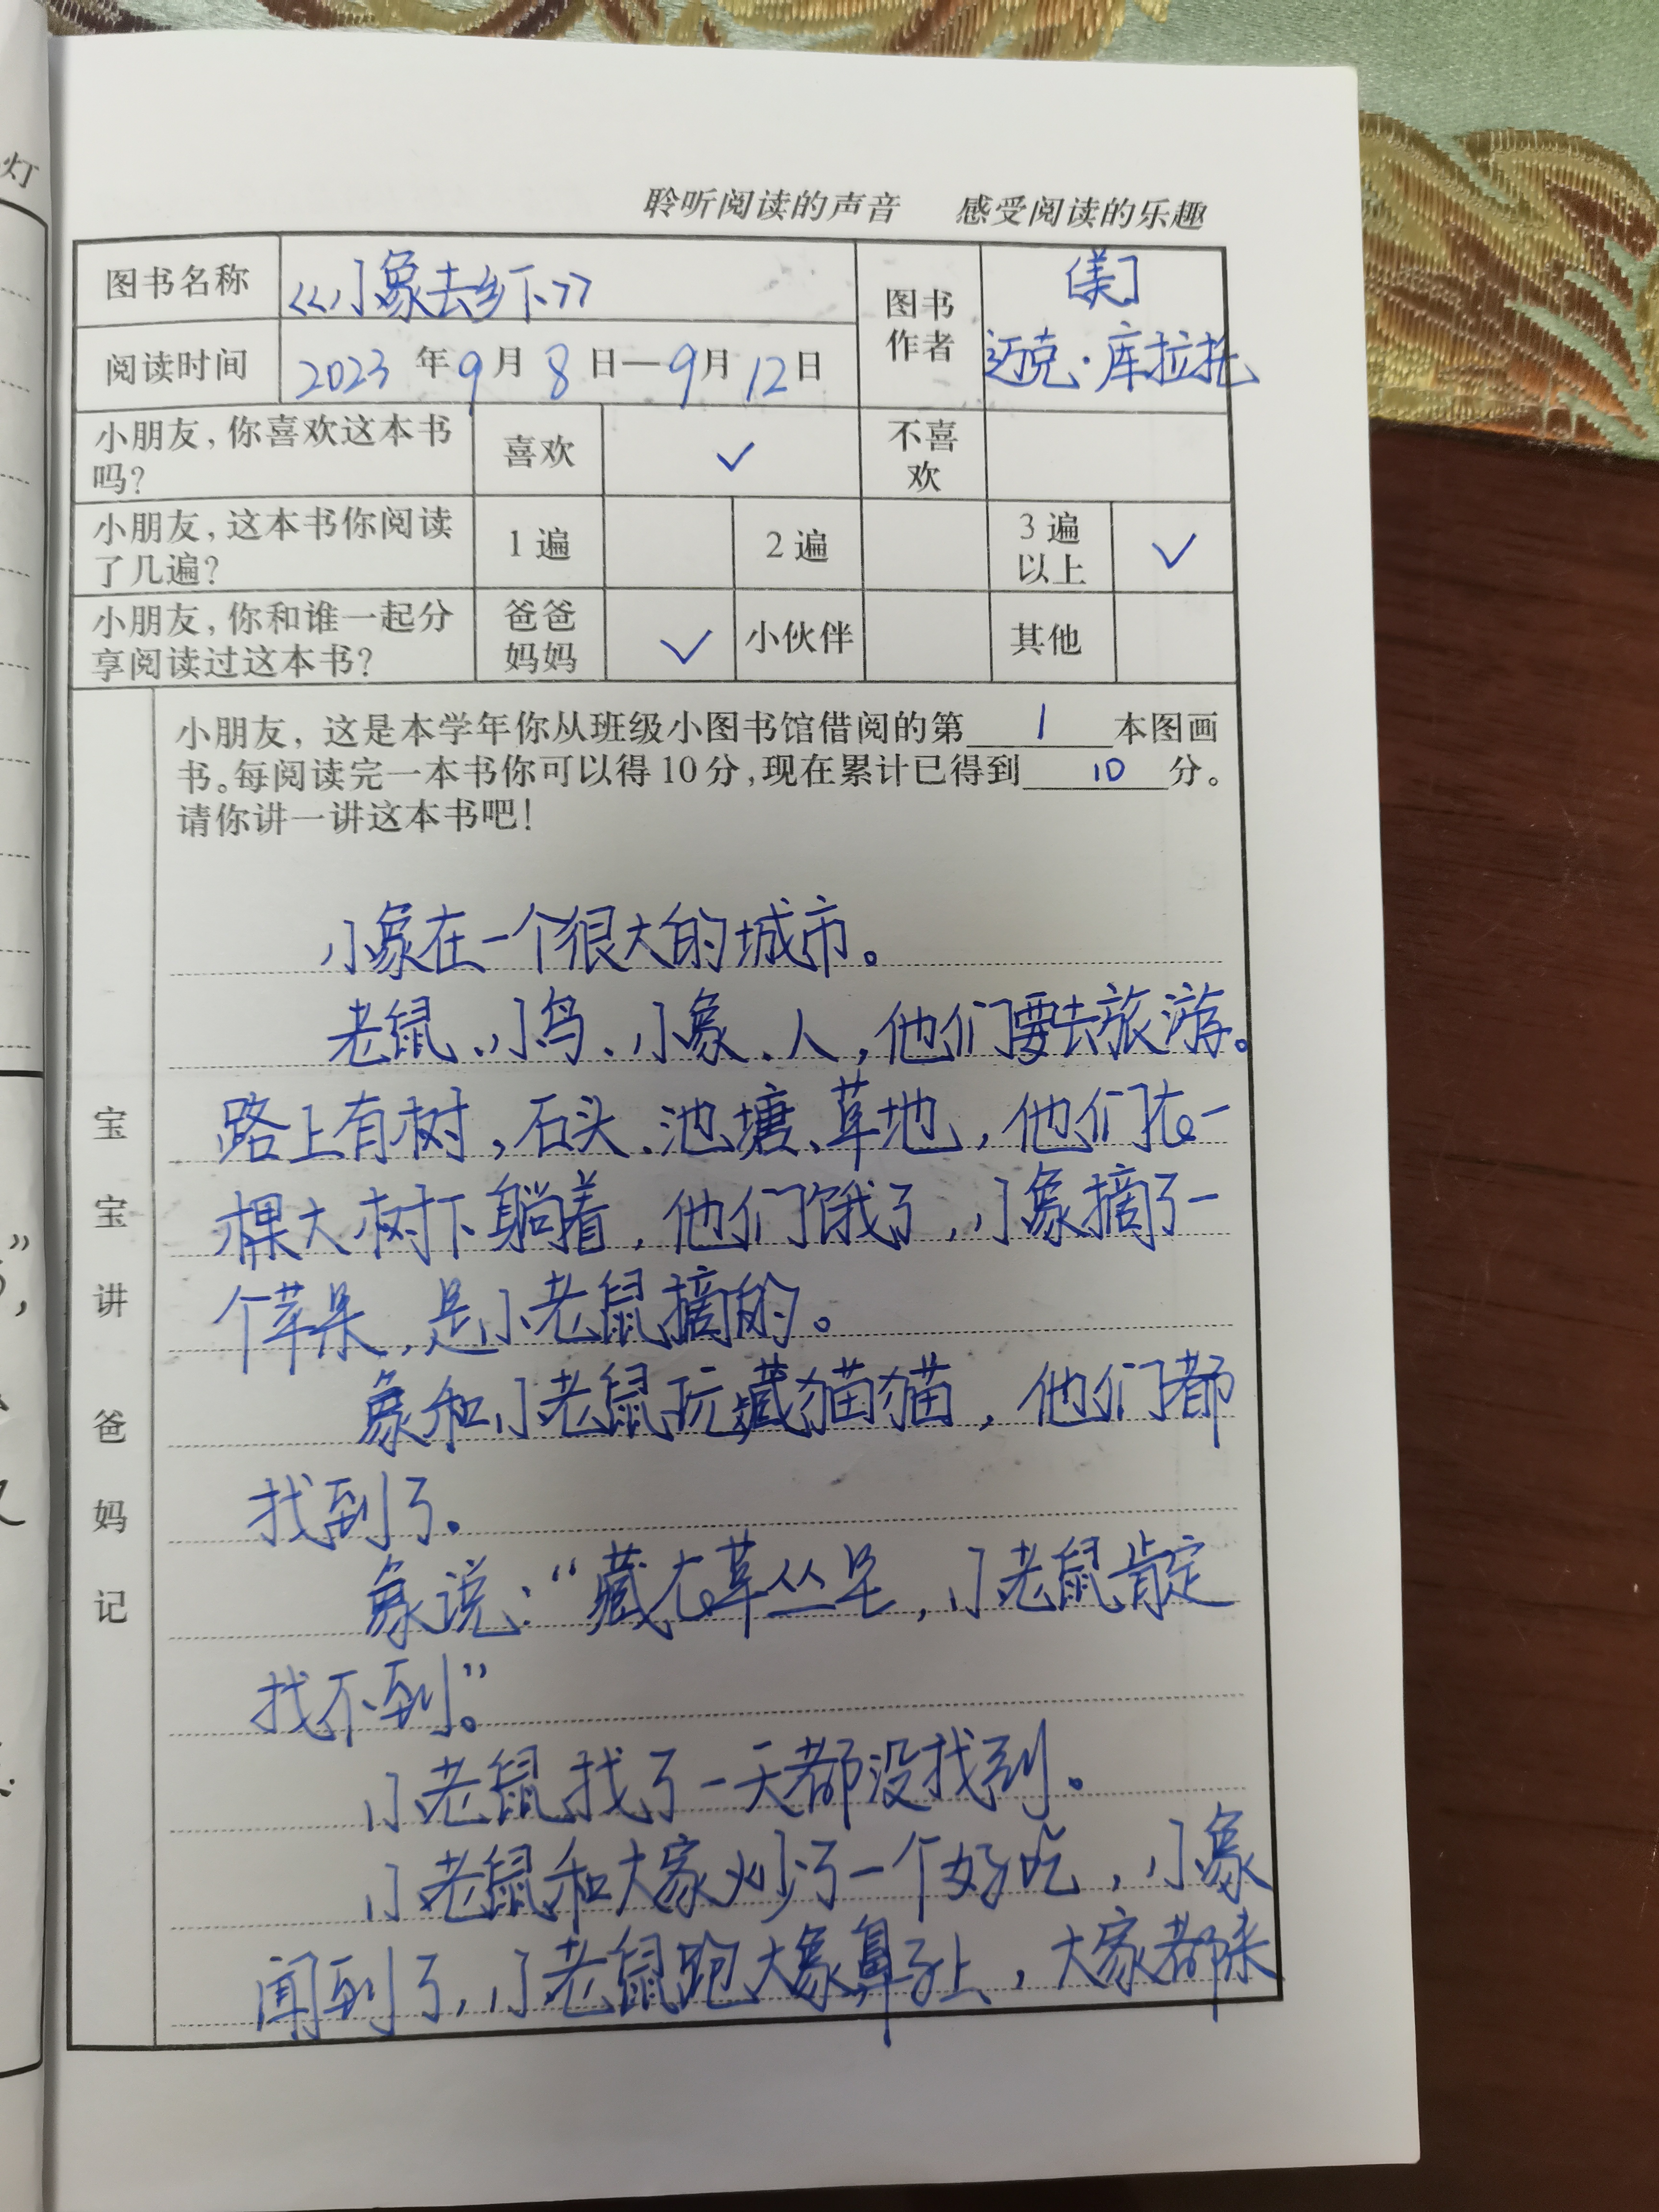 灯
聆听阅读的声音 感受阅读的乐趣
图书名称 《小象去乡下》 图书作者 [美]迈克·库拉托
阅读时间 2023年9月8日—9月12日
小朋友，你喜欢这本书吗？ 喜欢 ✓ 不喜欢
小朋友，这本书你阅读了几遍？ 1遍 2遍 3遍以上 ✓
小朋友，你和谁一起分享阅读过这本书？ 爸爸妈妈 ✓ 小伙伴 其他
小朋友，这是本学年你从班级小图书馆借阅的第1本图画
书。每阅读完一本书你可以得10分，现在累计已得到10分。
请你讲一讲这本书吧！
宝宝讲 爸妈记
小象在一个很大的城市。
老鼠、小鸟、小象、人，他们要去旅游。
路上有树，石头、池塘、草地，他们在一
棵大树下躺着，他们饿了，小象摘了一
个苹果，是小老鼠摘的。
象和小老鼠玩藏猫猫，他们都
找到了。
象说：“藏在草丛里，小老鼠肯定
找不到。”
小老鼠找了一天都没找到。
小老鼠和大家炒了一个好吃，小象
闻到了，小老鼠跑大象鼻子上，大家都来